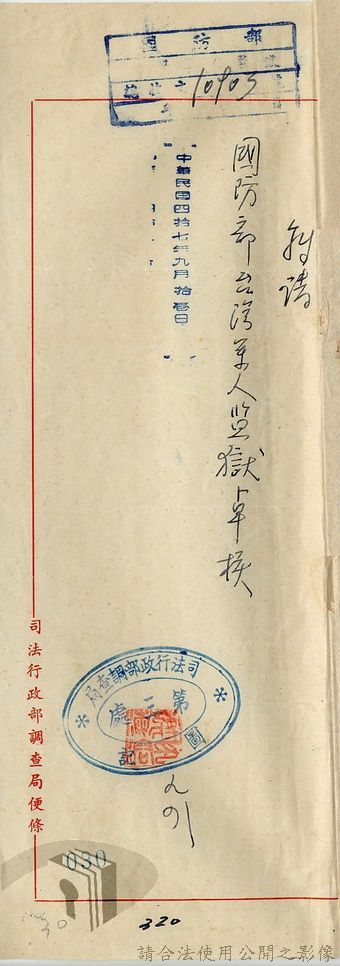 國防部
10903
轉請
國防部台灣軍人監獄卓核
中華民國四拾七年九月拾壹日
司法行政部調查局
第三處
圖記
司法行政部調查局便條
030
30
320
請合法使用公開之影像